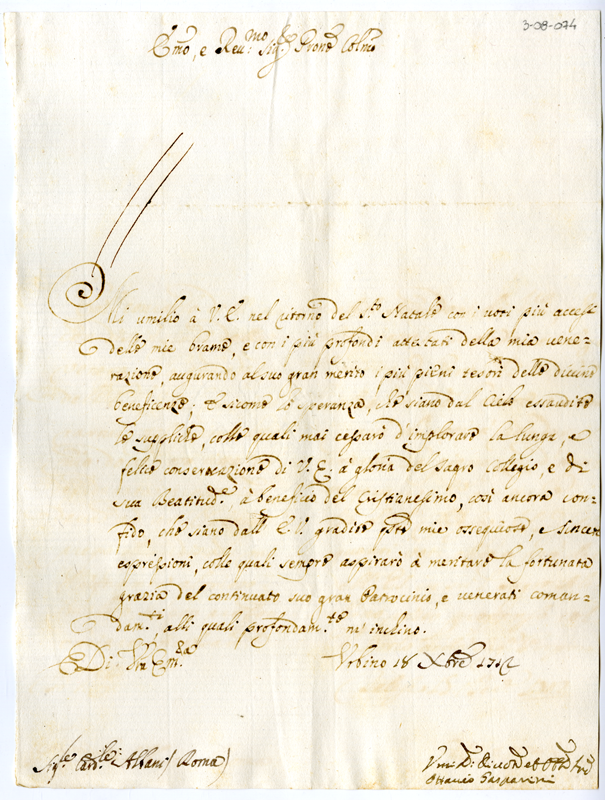 3-08-074
Emo, e Reu:mo Sig.r Prone Colmo
Mi umilio à V. E. nel ritorno del S.to Natale con i uoti più accesi
delle mie brame, e con i più profondi attestati della mia uene-
razione, augurando al suo gran merito i più pieni tesori delle diuine
beneficenze; E sicome hò speranza, che siano dal Cielo essaudite
le suppliche, colle quali mai cessarò d'implorare la lunga, e
felice conseruazione di V. E. à gloria del sagro Collegio, e di
sua Beatitud.e, à beneficio del Cristianesimo, così ancora con-
fido, che siano dall' E. V. gradite queste mie ossequiose, e sincere
espressioni, colle quali sempre aspirarò à meritare la fortunata
grazia del continuato suo gran Patrocinio, e uenerati coman-
dam.ti, alli quali profondam.te m'inchino.
Di Vra Em.za Vrbino 18 Xbre 171
Sig.re Card.le: Albani (Roma)
Vmo D: et
Ottauio Gasparini